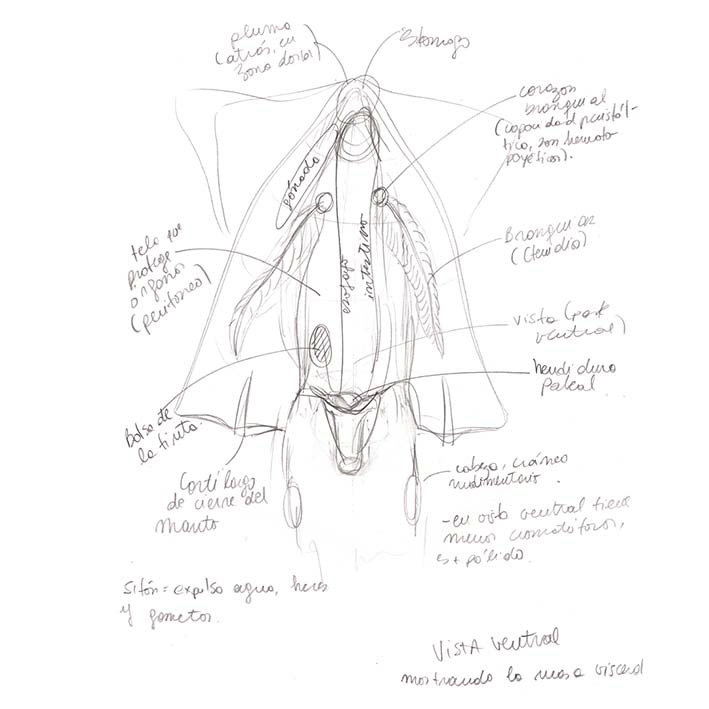 pluma
(atrás, en
zona dorsal)
Estomago
corazon
branquial
(capacidad peristál-
tico, son hemato
poyéticos).
gónada
esofago
intestino
Branquias
(Ctenidio)
tela que
protege
organos
(peritoneo)
vista (parte
ventral)
hendidura
Paleal
Bolsa de
la tinta.
Cartílago
de cierre del
Manto
cabeza, cráneo
rudimentario.
-en vista ventral tiene
menos cromatóforos,
es + pálido.
Sifón = expulsa agua, heces
y gametos.
VISTA ventral
mostrando la masa visceral